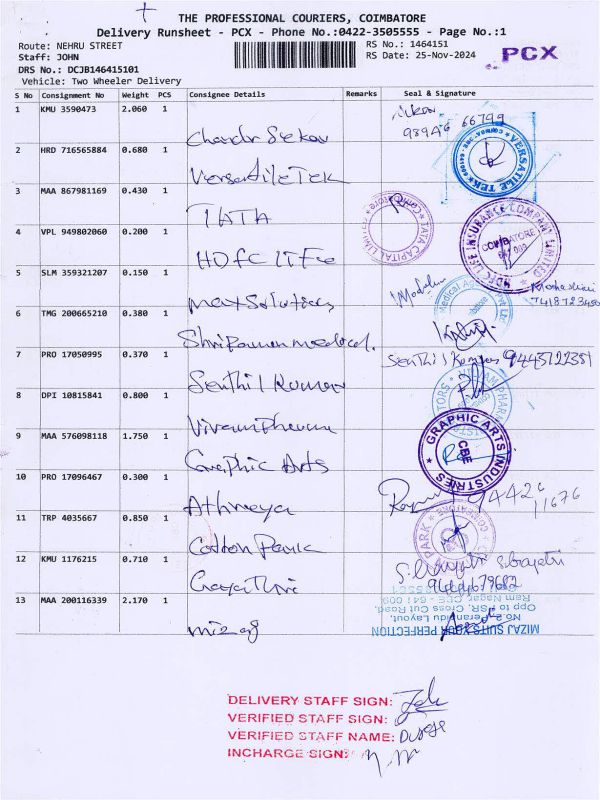 THE PROFESSIONAL COURIERS, COIMBATORE
Delivery Runsheet - PCX - Phone No.:0422-3505555 - Page No.:1
Route: NEHRU STREET
RS No.: 1464151
Staff: JOHN
RS Date: 25-Nov-2024
PCX
DRS No.: DCJB146415101
Vehicle: Two Wheeler Delivery
S No Consignment No Weight PCS Consignee Details Remarks Seal & Signature
1 KMU 3590473 2.060 1 Chandr Sekar
98946 66799
2 HRD 716565884 0.680 1 Versatile Tek
VERSATILE TEK
3 MAA 867981169 0.430 1 TATA
TATA CAPITAL LIMITED
4 VPL 949802060 0.200 1 HDFC life
HDFC LIFE INSURANCE COMPANY LIMITED
COIMBATORE
5 SLM 359321207 0.150 1 Max Solutions
6 TMG 200665210 0.380 1 Shri Raman medical.
Medical
7 PRO 17050995 0.370 1 Senthil Kumar
Senthil Kumar 9443122351
8 DPI 10815841 0.800 1
9 MAA 576098118 1.750 1 Graphic Arts
GRAPHIC ARTS INDUSTRIES
CBE
10 PRO 17096467 0.300 1 Athmeya
94426
11676
11 TRP 4035667 0.850 1 Cotton Park
PARK
12 KMU 1176215 0.710 1 Gayathri
13 MAA 200116339 2.170 1 mizaj
MIZAJ SUITS YOUR PERFECTION
No.2, Perandu Layout,
Opp to PSR, Cross Cut Road,
Ram Nagar, CBE - 641 009
DELIVERY STAFF SIGN:
VERIFIED STAFF SIGN:
VERIFIED STAFF NAME:
INCHARGE SIGN: